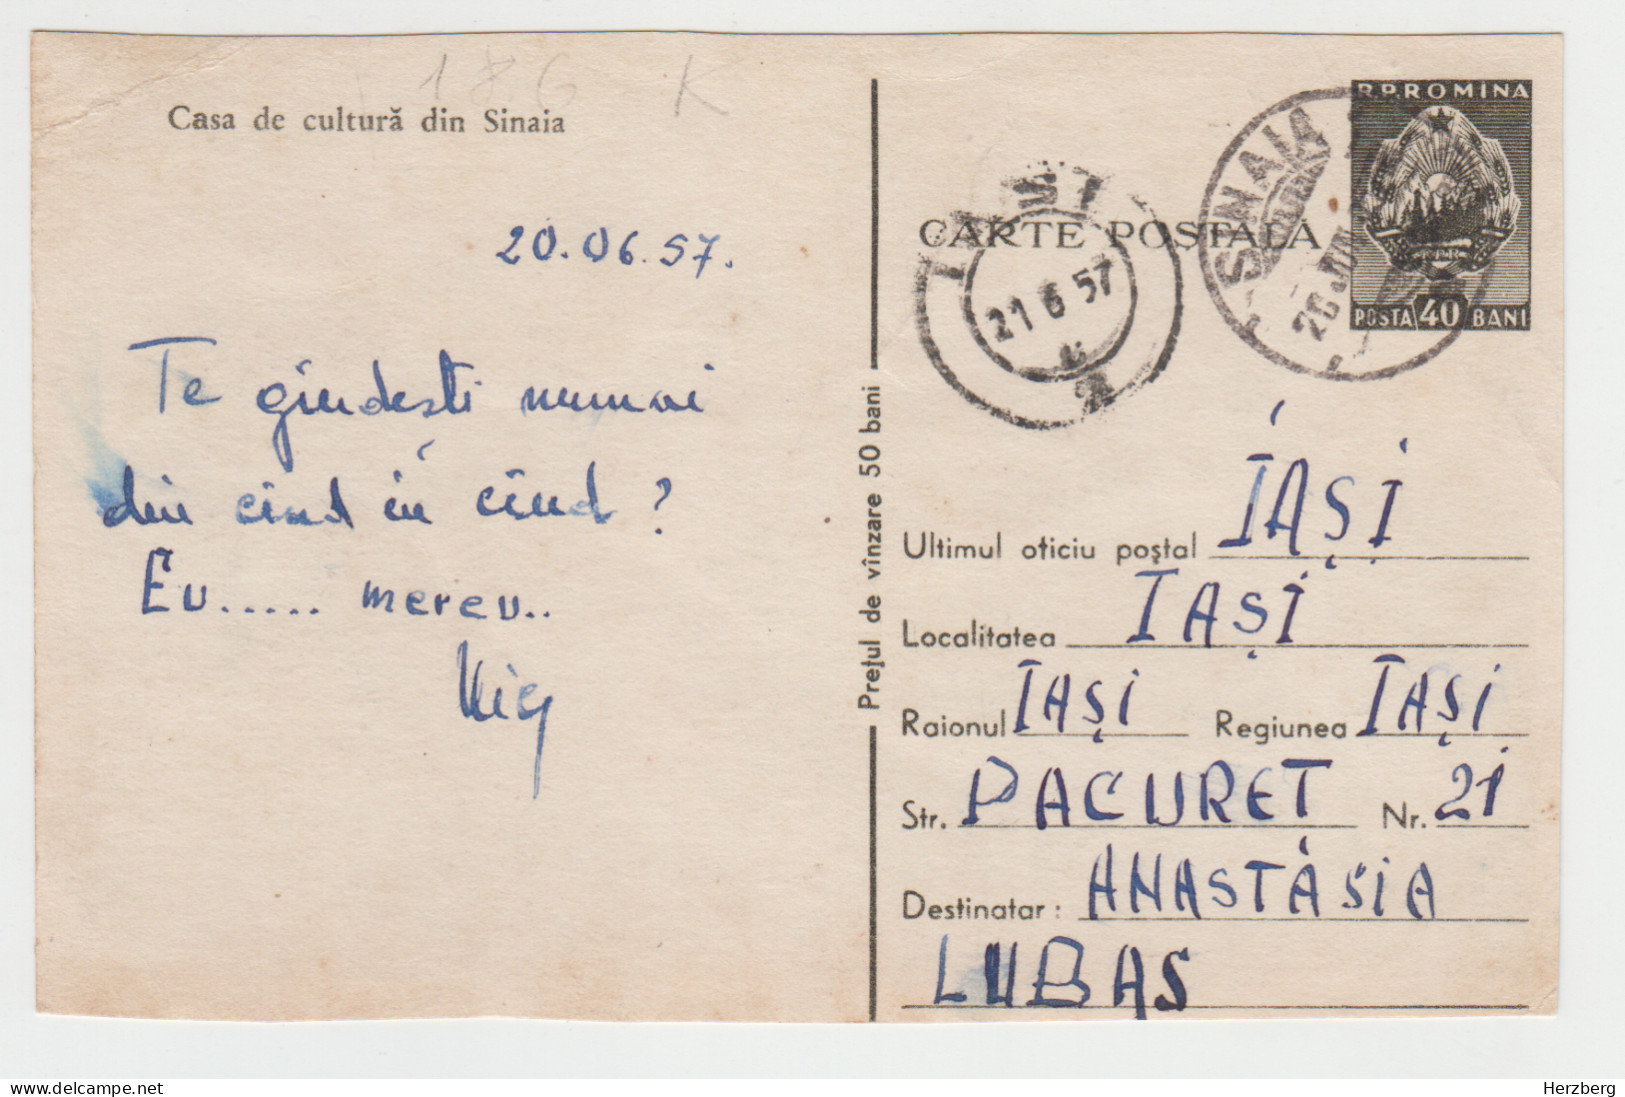 186 K
Casa de cultură din Sinaia
20.06.57.
Te gîndești numai
din cînd în cînd?
Eu..... mereu..
Prețul de vînzare 50 bani
CARTE POȘTALĂ
R.P.ROMINA
POSTA 40 BANI
SINAIA
21 6 57
2
Ultimul oficiu poștal IAȘI
Localitatea IAȘI
Raionul IAȘI Regiunea IAȘI
Str. PACURET Nr. 21
Destinatar: ANASTASIA
LUBAS
delcampe.net
Herzberg